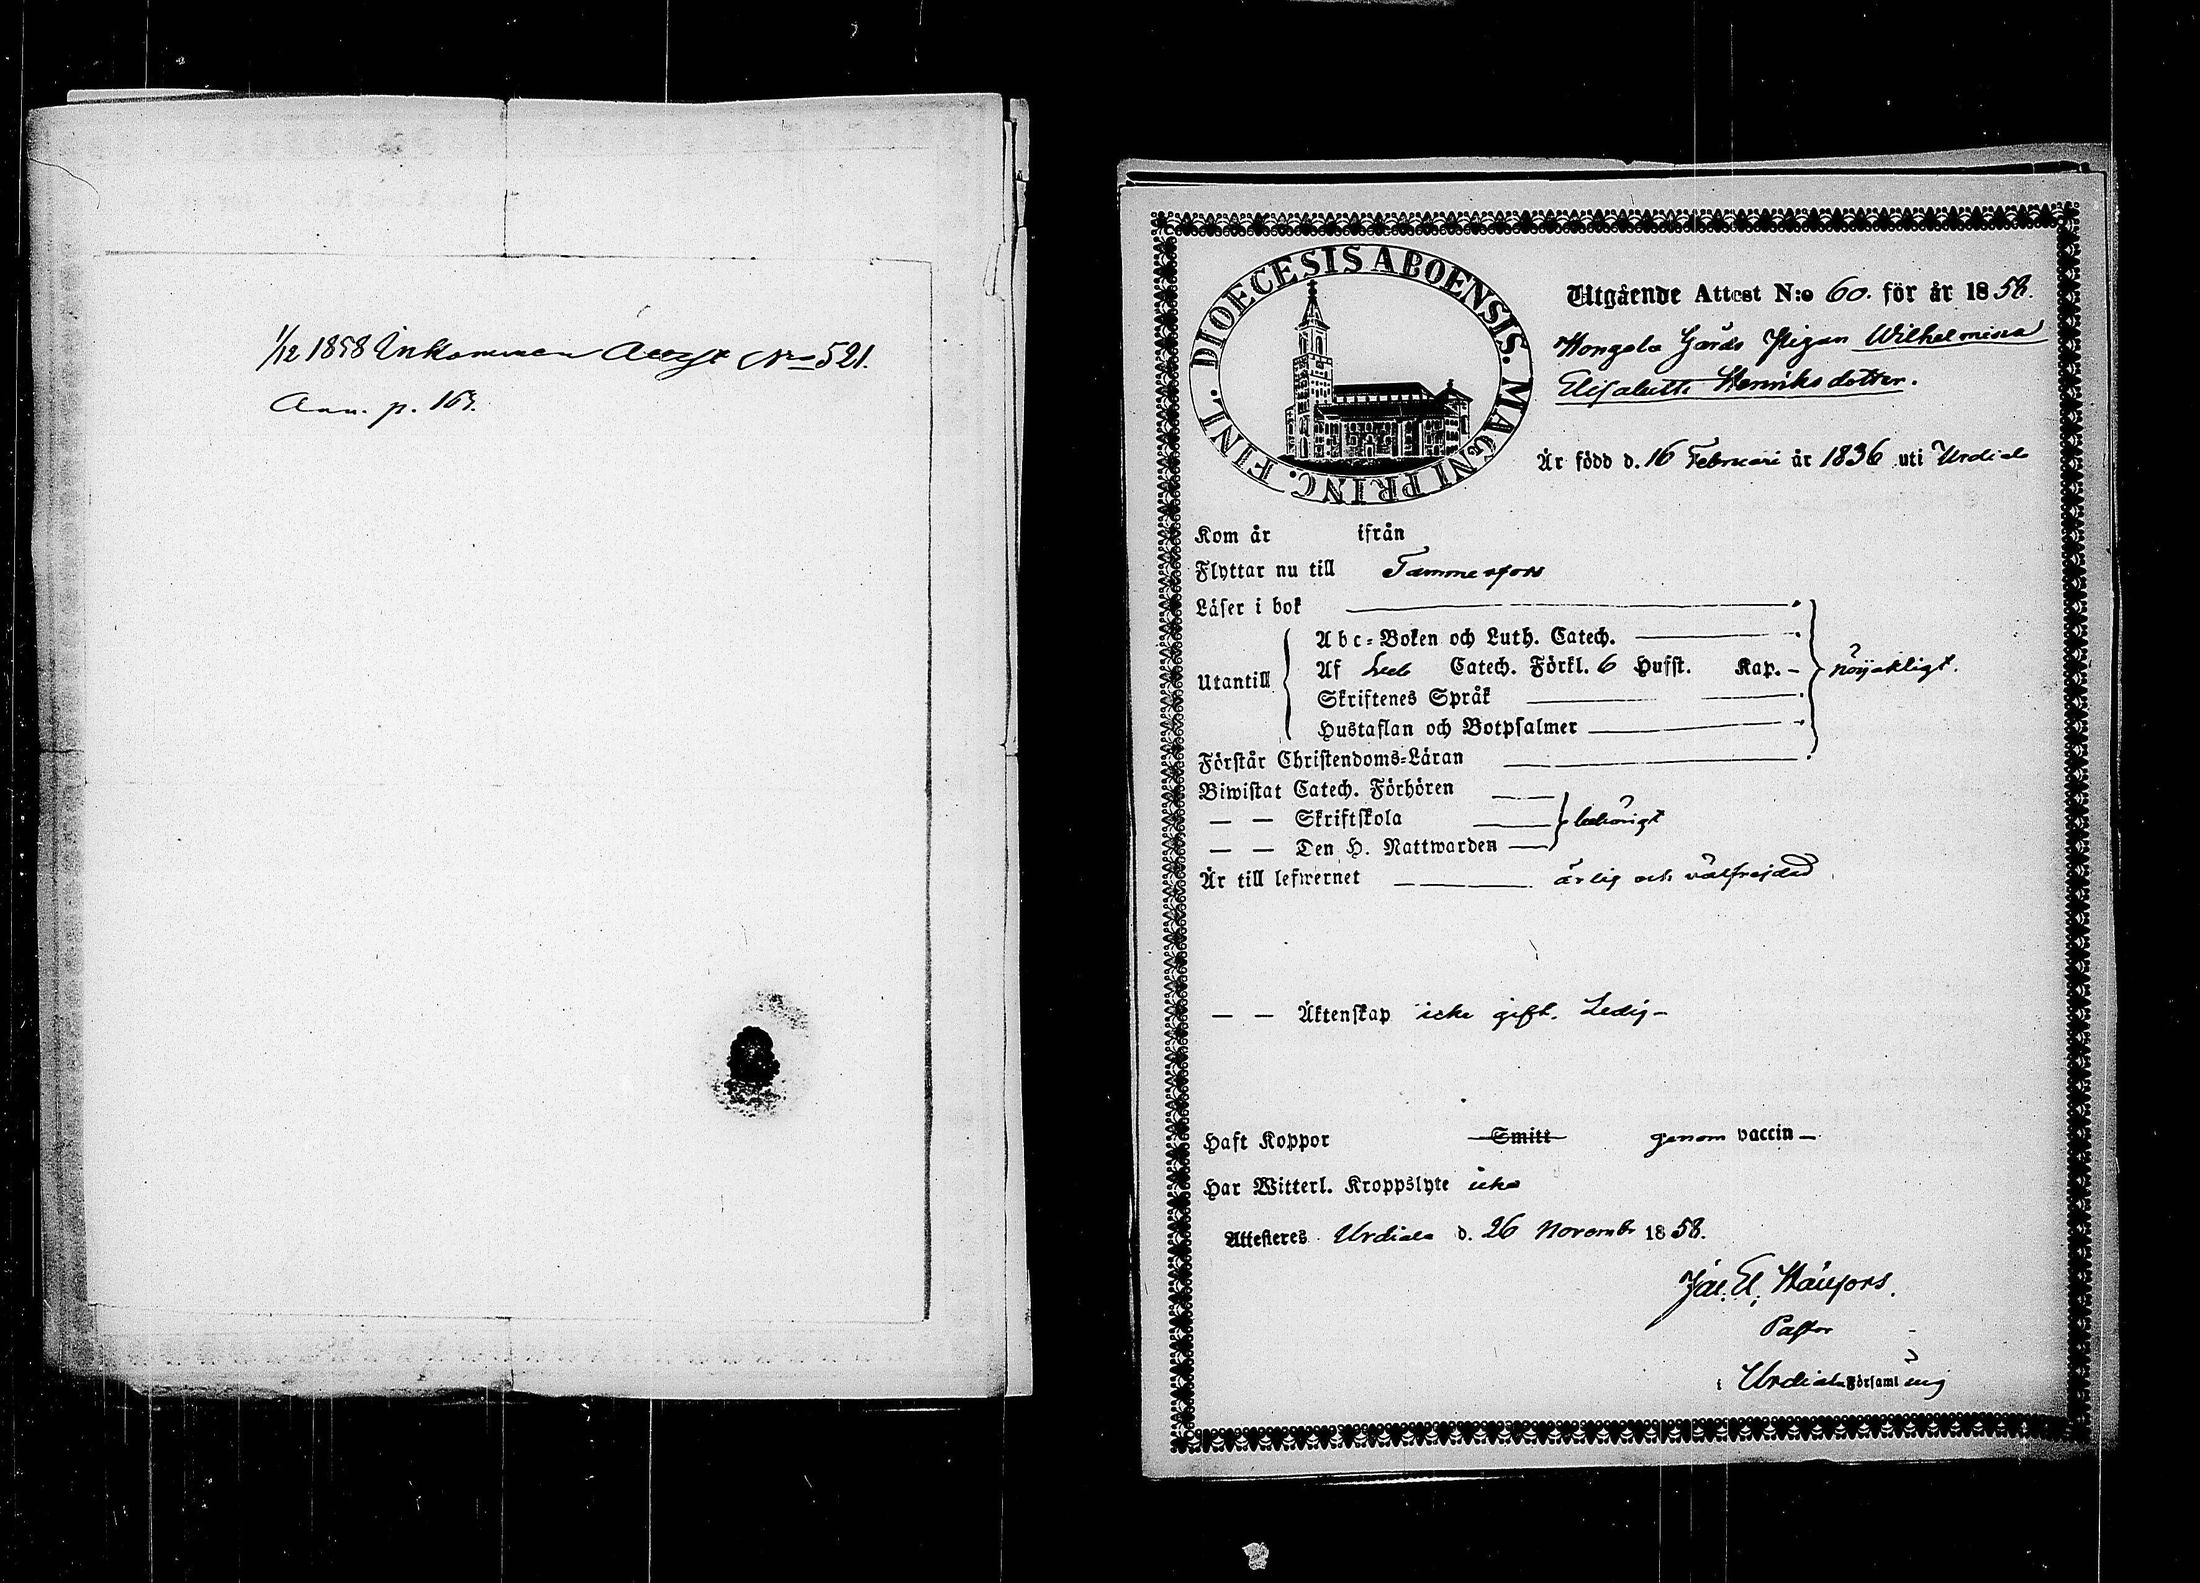 1/12 1858 Inkommen Attest No 521.
Ann. p. 163.
DIOECESIS ABOENSIS. MAGNI PRINC. FINL.
Utgående Attest N:o 60. för år 1858.
Hongola Gårds Pigan Wilhelmina
Elisabeth Henriksdotter.
Är född d. 16 Februari år 1836 uti Urdiala
Kom år ifrån
Flyttar nu till Tammerfors
Läser i bok
Abc-Boken och Luth. Catech.
Utantill Af Catech. Förkl. 6 Hufst. Kap. – nöjaktligt.
Skriftenes Språk
Hustaflan och Botpsalmer
Förstår Christendoms-Läran
Biwistat Catech. Förhören
— — Skriftskola behörigt
— — Den H. Nattwarden
Är till lefwernet ärlig och välfrejdad
— — Äktenskap icke gift. Ledig –
Haft Koppor Smitt genom vaccin –
Har Witterl. Kroppslyte icke
Attesteres Urdiala d. 26 Novembr 1858.
Pastor
i Urdiala Församling